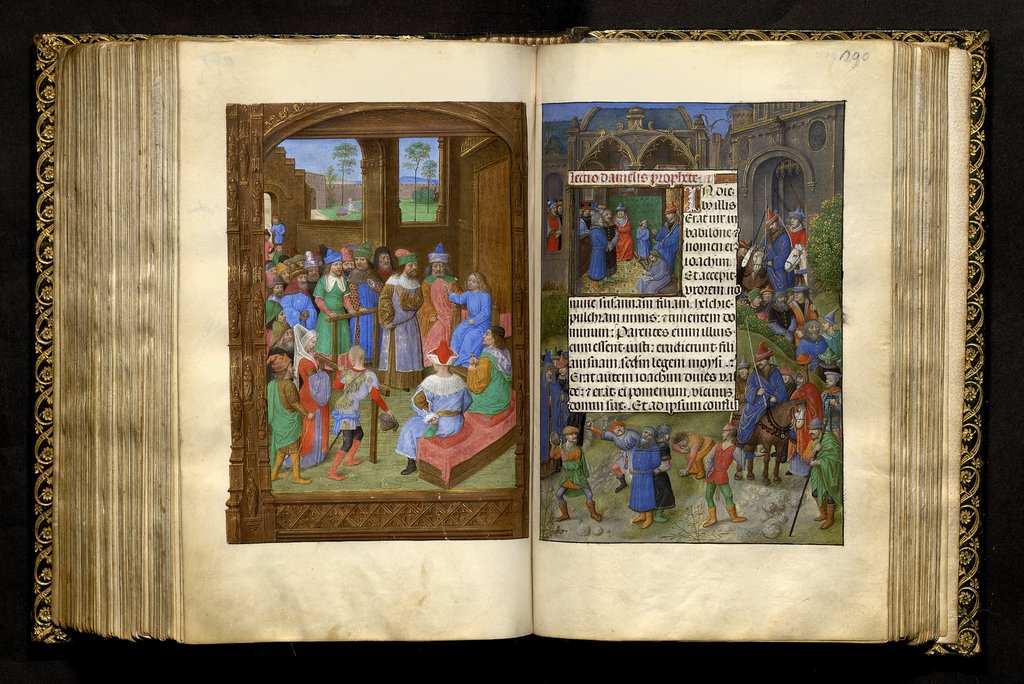 290
Lectio danielis prophete
IN die
bus illis
Erat uir in
babilone ⁊
nomen ei⁹
ioachim
Et accepit
vxorem no
mine susannam filiam helchie
pulchram nimis : et timentem do
minum : Parentes enim illius
cum essent iusti : erudierunt fili
am suam secundum legem moysi .
Erat autem ioachim diues val
de : et erat ei pomerium vicinum
domui sue . Et ad ipsum conflu